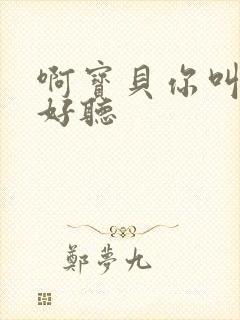 啊寶貝你叫
好聽
鄭夢九